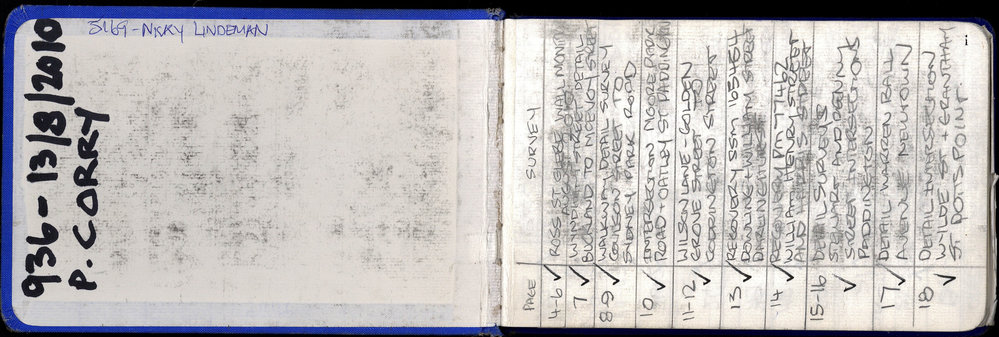 5169 - NICKY LINDEMAN
936 - 13/8/2010
P. CORRY
i
PAGE SURVEY
4-6 ✓ ROSS ST GLEBE WALL MONITOR
7 ✓ WYNDHAM STREET DETAIL
BUCKLAND TO McEVOY STREET
8-9 ✓ WALKWAY DETAIL SURVEY
STREET TO
SYDNEY PARK ROAD
10 ✓ INTERSECTION MOORE PARK
ROAD - OATLEY ST PADDINGTON
11-12 ✓ WILSON LANE - GOLDEN
GROVE STREET TO
CODRINGTON STREET
13 ✓ RECOVERY SSM 165454
DOWLING + WILLIAM STREET
14 ✓ RECOVERY PM 7462
WILLIAM HENRY STREET
AND STREET
15-16 ✓ DETAIL SURVEYS
STEWART AND RENNY
STREET INTERSECTIONS
PADDINGTON
17 ✓ DETAIL WARREN BALL
AVENUE NEWTOWN
18 ✓ DETAIL INTERSECTION
WILDE ST + GRANTHAM
ST POTTS POINT